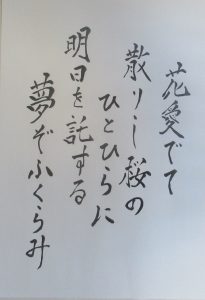 花愛でて
散りし桜の
ひとひらに
明日を託する
夢ぞふくらみ